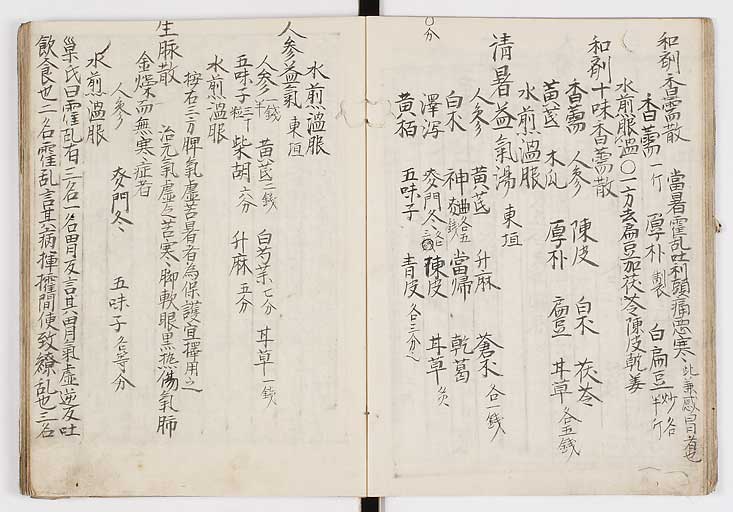 和剤香薷散 當暑霍乱吐利頭痛悪寒此兼感冒者也
香薷一斤 厚朴製 白扁豆炒各半斤
水煎服温〇一方去扁豆加茯苓陳皮乾姜
和剤十味香薷散
香薷 人参 陳皮 白朮 茯苓
黄芪 木瓜 厚朴 扁豆 甘草各五銭
水煎温服
清暑益氣湯 東垣
人参 黄芪 升麻 蒼朮各一銭
白朮 神麹各五 當歸 乾葛
澤瀉 麥門冬 陳皮 甘草炙
黄栢 五味子 青皮各三分
〇分
水煎温服
人参益氣 東垣
人参一銭半 黄芪二銭 白芍薬七分 甘草一銭
五味子三十粒 柴胡六分 升麻五分
水煎温服
按右三方脾氣虚苦暑者為保護宜擇用之
生脉散 治元氣虚乏苦寒脚軟眼黒熱傷氣肺
金燥而無寒症者
人参 麥門冬 五味子各等分
水煎温服
巣氏曰霍乱有三名一名胃反言其胃氣虚逆反吐
飲食也二名霍乱言其病揮攉間使致繚乱也三名